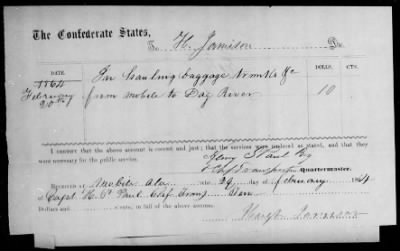 The Confederate States,
To H. Jamison Dr.
DATE. DOLLS. CTS.
1864 For hauling baggage trunks &c
February 20th from mobile to Dog River 10
I CERTIFY that the above account is correct and just; that the services were rendered as stated, and that they
were necessary for the public service.
Henry S Paul
Quartermaster.
RECEIVED at Mobile Ala the 29 of February 1864,
of Capt. H. S. Paul Chf. Transp.
Dollars and cents, in full of the above account.
Jamison